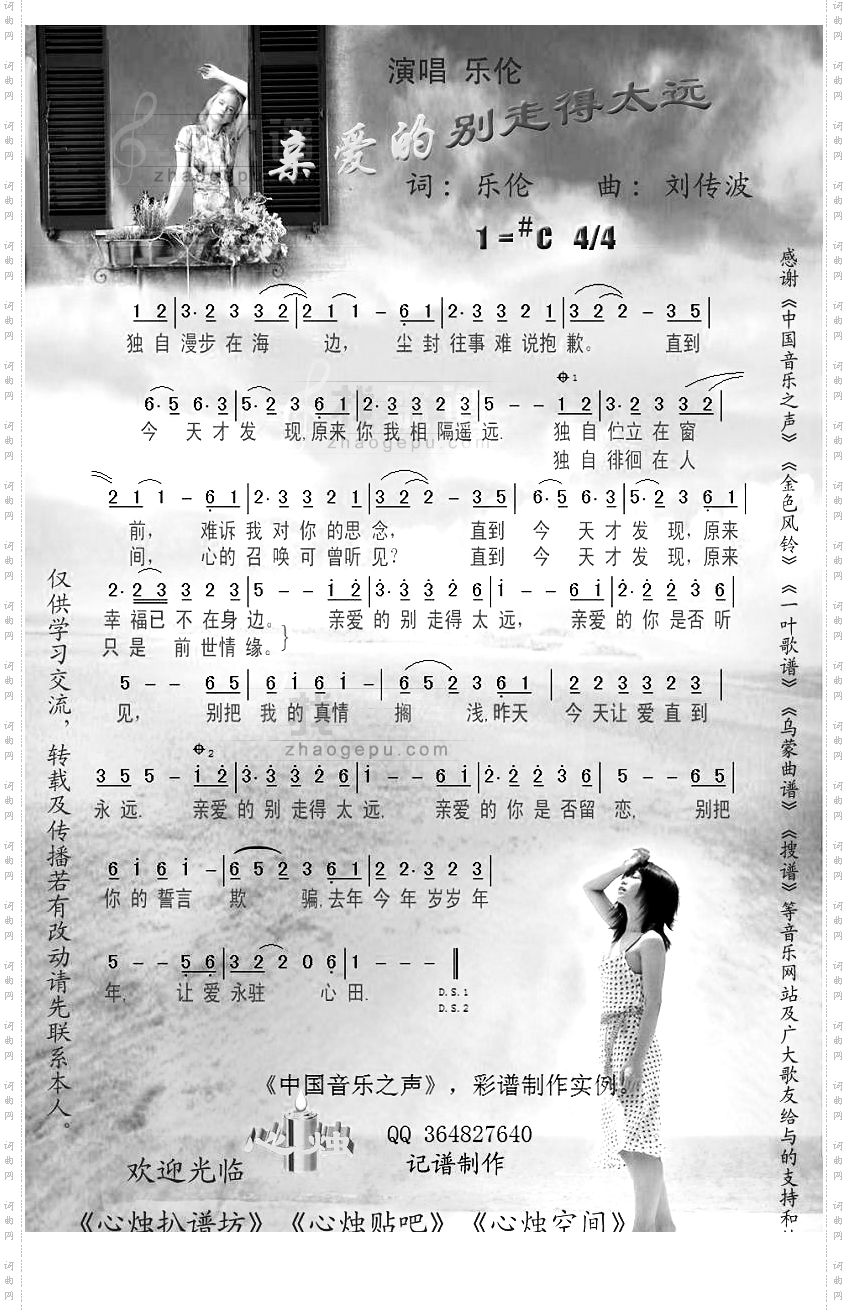 演唱 乐伦
亲爱的别走得太远
词：乐伦 曲：刘传波
1=#C 4/4
1 2|3· 2 3 3 2|2 1 1 - 6 1|2· 3 3 2 1|3 2 2 - 3 5|
独自漫步在海 边， 尘封往事难说抱歉。 直到
6· 5 6· 3|5· 2 3 6 1|2· 3 3 2 3|5 - - 1 2|3· 2 3 3 2|
今 天才发 现,原来你我相隔遥远. 独自伫立在窗
独自徘徊在人
2 1 1 - 6 1|2· 3 3 2 1|3 2 2 - 3 5| 6· 5 6· 3|5· 2 3 6 1|
前， 难诉我对你的思念， 直到 今 天才发 现，原来
间， 心的召唤可曾听见？ 直到 今 天才发 现，原来
2· 2 3 3 2 3|5 - - 1 2|3· 3 3 2 6|1 - - 6 1|2· 2 2 3 6|
幸福已不在身边。 亲爱的别走得太远， 亲爱的你是否听
只是 前世情缘。
5 - - 6 5|6 1 6 1 -|6 5 2 3 6 1| 2 2 3 3 2 3|
见， 别把 我的真情 搁 浅,昨天 今天让爱直到
3 5 5 - 1 2|3· 3 3 2 6|1 - - 6 1|2· 2 2 3 6| 5 - - 6 5|
永远. 亲爱的别走得太远. 亲爱的你是否留恋, 别把
6 1 6 1 -|6 5 2 3 6 1|2 2· 3 2 3|
你的誓言 欺 骗,去年今年岁岁年
5 - - 5 6|3 2 2 0 6|1 - - -‖
年, 让爱永驻 心田.
D.S.1
D.S.2
《中国音乐之声》，彩谱制作实例！
心烛
QQ 364827640
记谱制作
欢迎光临
《心烛扒谱坊》《心烛贴吧》《心烛空间》
仅供学习交流，转载及传播若有改动请先联系本人。
感谢《中国音乐之声》《金色风铃》《一叶歌谱》《乌蒙曲谱》《搜谱》等音乐网站及广大歌友给与的支持和
zhaogepu.com
zhaogepu.com
zhaogepu.com
词曲网